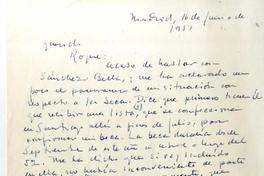 Madrid, 16 de junio de
1951
querido
Roque: Acabo de hablar con
Sánchez Bella, y me ha aclarado un
poco el panorama de mi situación con
respecto a la beca. Dice que primero tiene él
que recibir una lista, que se confecciona
en Santiago allá a fines de julio, para
confirmar mi beca. La beca duraría desde
Septiembre de este año a
52. Me ha dicho que si voy incluido
en ella, no habría inconveniente de parte